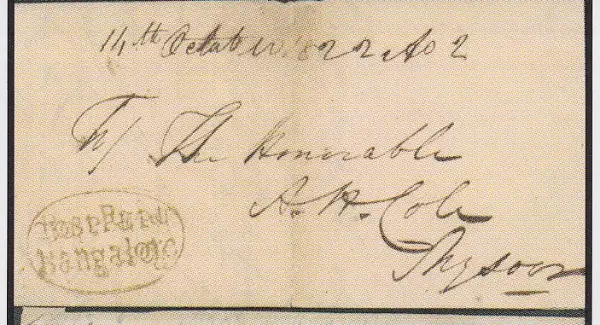 14th October 1822 No 2
To/ The Honorable
A. H. Cole
Mysoor
Post Paid
Bangalore